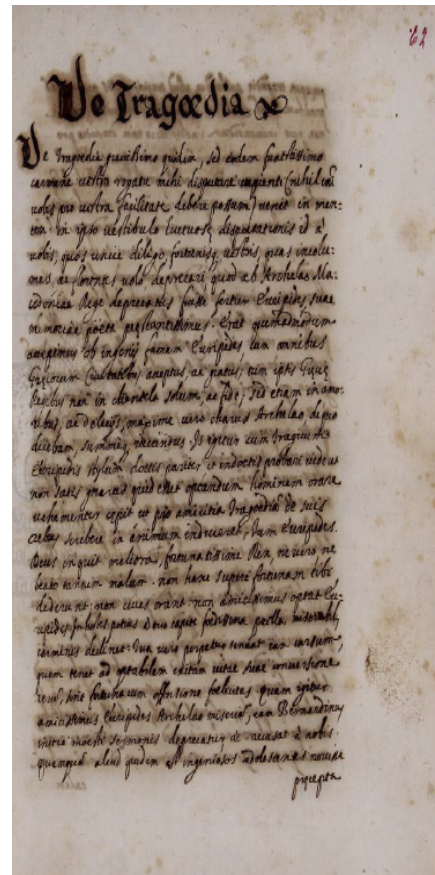 62
De Tragœdia
De Tragœdia gravissimo quidem, sed eodem funestissimo
carmine vestro rogatu mihi disputare cupienti (nihil enim
vobis pro vestra facilitate debere possum) venit in men-
tem in ipso vestibulo luctuosæ disputationis id a'
vobis, quos unice diligo, fortunisq vestris, quas incolu-
mes, ac florentes volo deprecari, quod ab Archelao Ma-
cedoniæ Rege deprecatus fuisse fertur Euripides suæ
memoriæ poëta præstantissimus. Erat quemadmodum
accepimus ob ingenij famam Euripides cum omnibus
Græcorum Civitatibus acceptus, ac gratus; tum ipsis
Regibus non in clientela solum, ac fide, sed etiam in amo-
ribus, ac delicijs, maxime vero charus Archelao de quo
dicebam, summeq iucundus. Is igitur cum Tragicum
Euripidis stylum doctis pariter et indoctis probari videret
non satis gnarus quid esset optandum hominem orare
vehementer cepit ut pro amicitia Tragœdiam de suis
rebus scribere in animum induceret, Tum Euripides.
Deus inquit meliora, fortunatissime Rex, ne vero ne
beet tantum malum. non hanc superi fortunam tibi
dederunt. non cives orant. non amicissimus optat Eu-
ripides. In hostes potius a tuo capite fœdissima
carminis declinet. Tua vero perpetuo teneat eum cursum,
quem tenet ad optabilem exitum vitæ sine conversione
rerum, sine fortunarum offensione Quam igitur
amicissimus Euripides Archelao miseriam, eam Bernardinus
initio mœsti sermonis deprecatur ac recusat a nobis.
quamquam aliud quidem est ingeniosos adolescentes novisse
præcepta